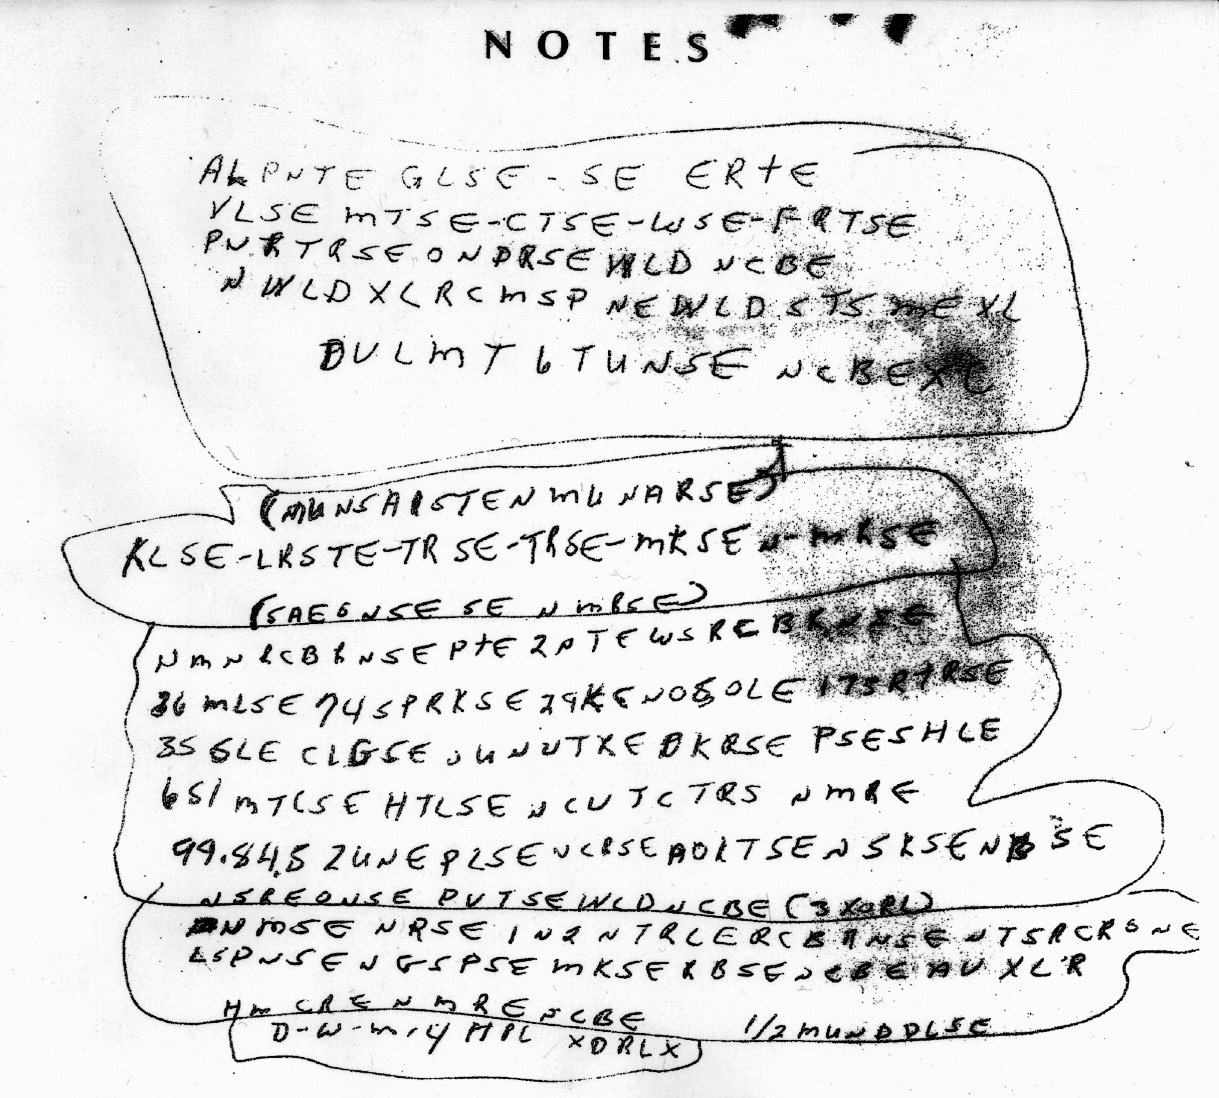 NOTES
ALPNTE GLSE - SE ERTE
VLSE MTSE-CTSE-WSE-FRTSE
PNRTRSEONDRSEWLD NCBE
NWLDXLRCMSP NEWLDSTSMEXL
DULMT6TUNSE NCBEXL
(MUNSAISTENMUNARSE)
KLSE-LRSTE-TRSE-TRSE-MKSEN-MRSE
(SAE6NSESE N MBSE)
NMNRCBRNSEPTE2PTEWSREBRNSE
36MLSE74SPRKSE29KENOSOLE173RTRSE
35GLE CLGSE UNUTXEDKRSE PSESHLE
651MTCSE HTLSE NCUTCTRS NMRE
99.84.5 2UNEPLSE NCRSEAOKTSENSKSENB SE
NSREONSE PUTSEWLDNCBE (3XORL)
NMSE NRSE IN2NTRLERCBRNSENTSRCRONE
LSPNSENGSPSE MKSERBSENCBEAUXLR
HMCRE NMRENCBE 1/2MUNDDLSE
D-W-M-4 HPL XDRLX